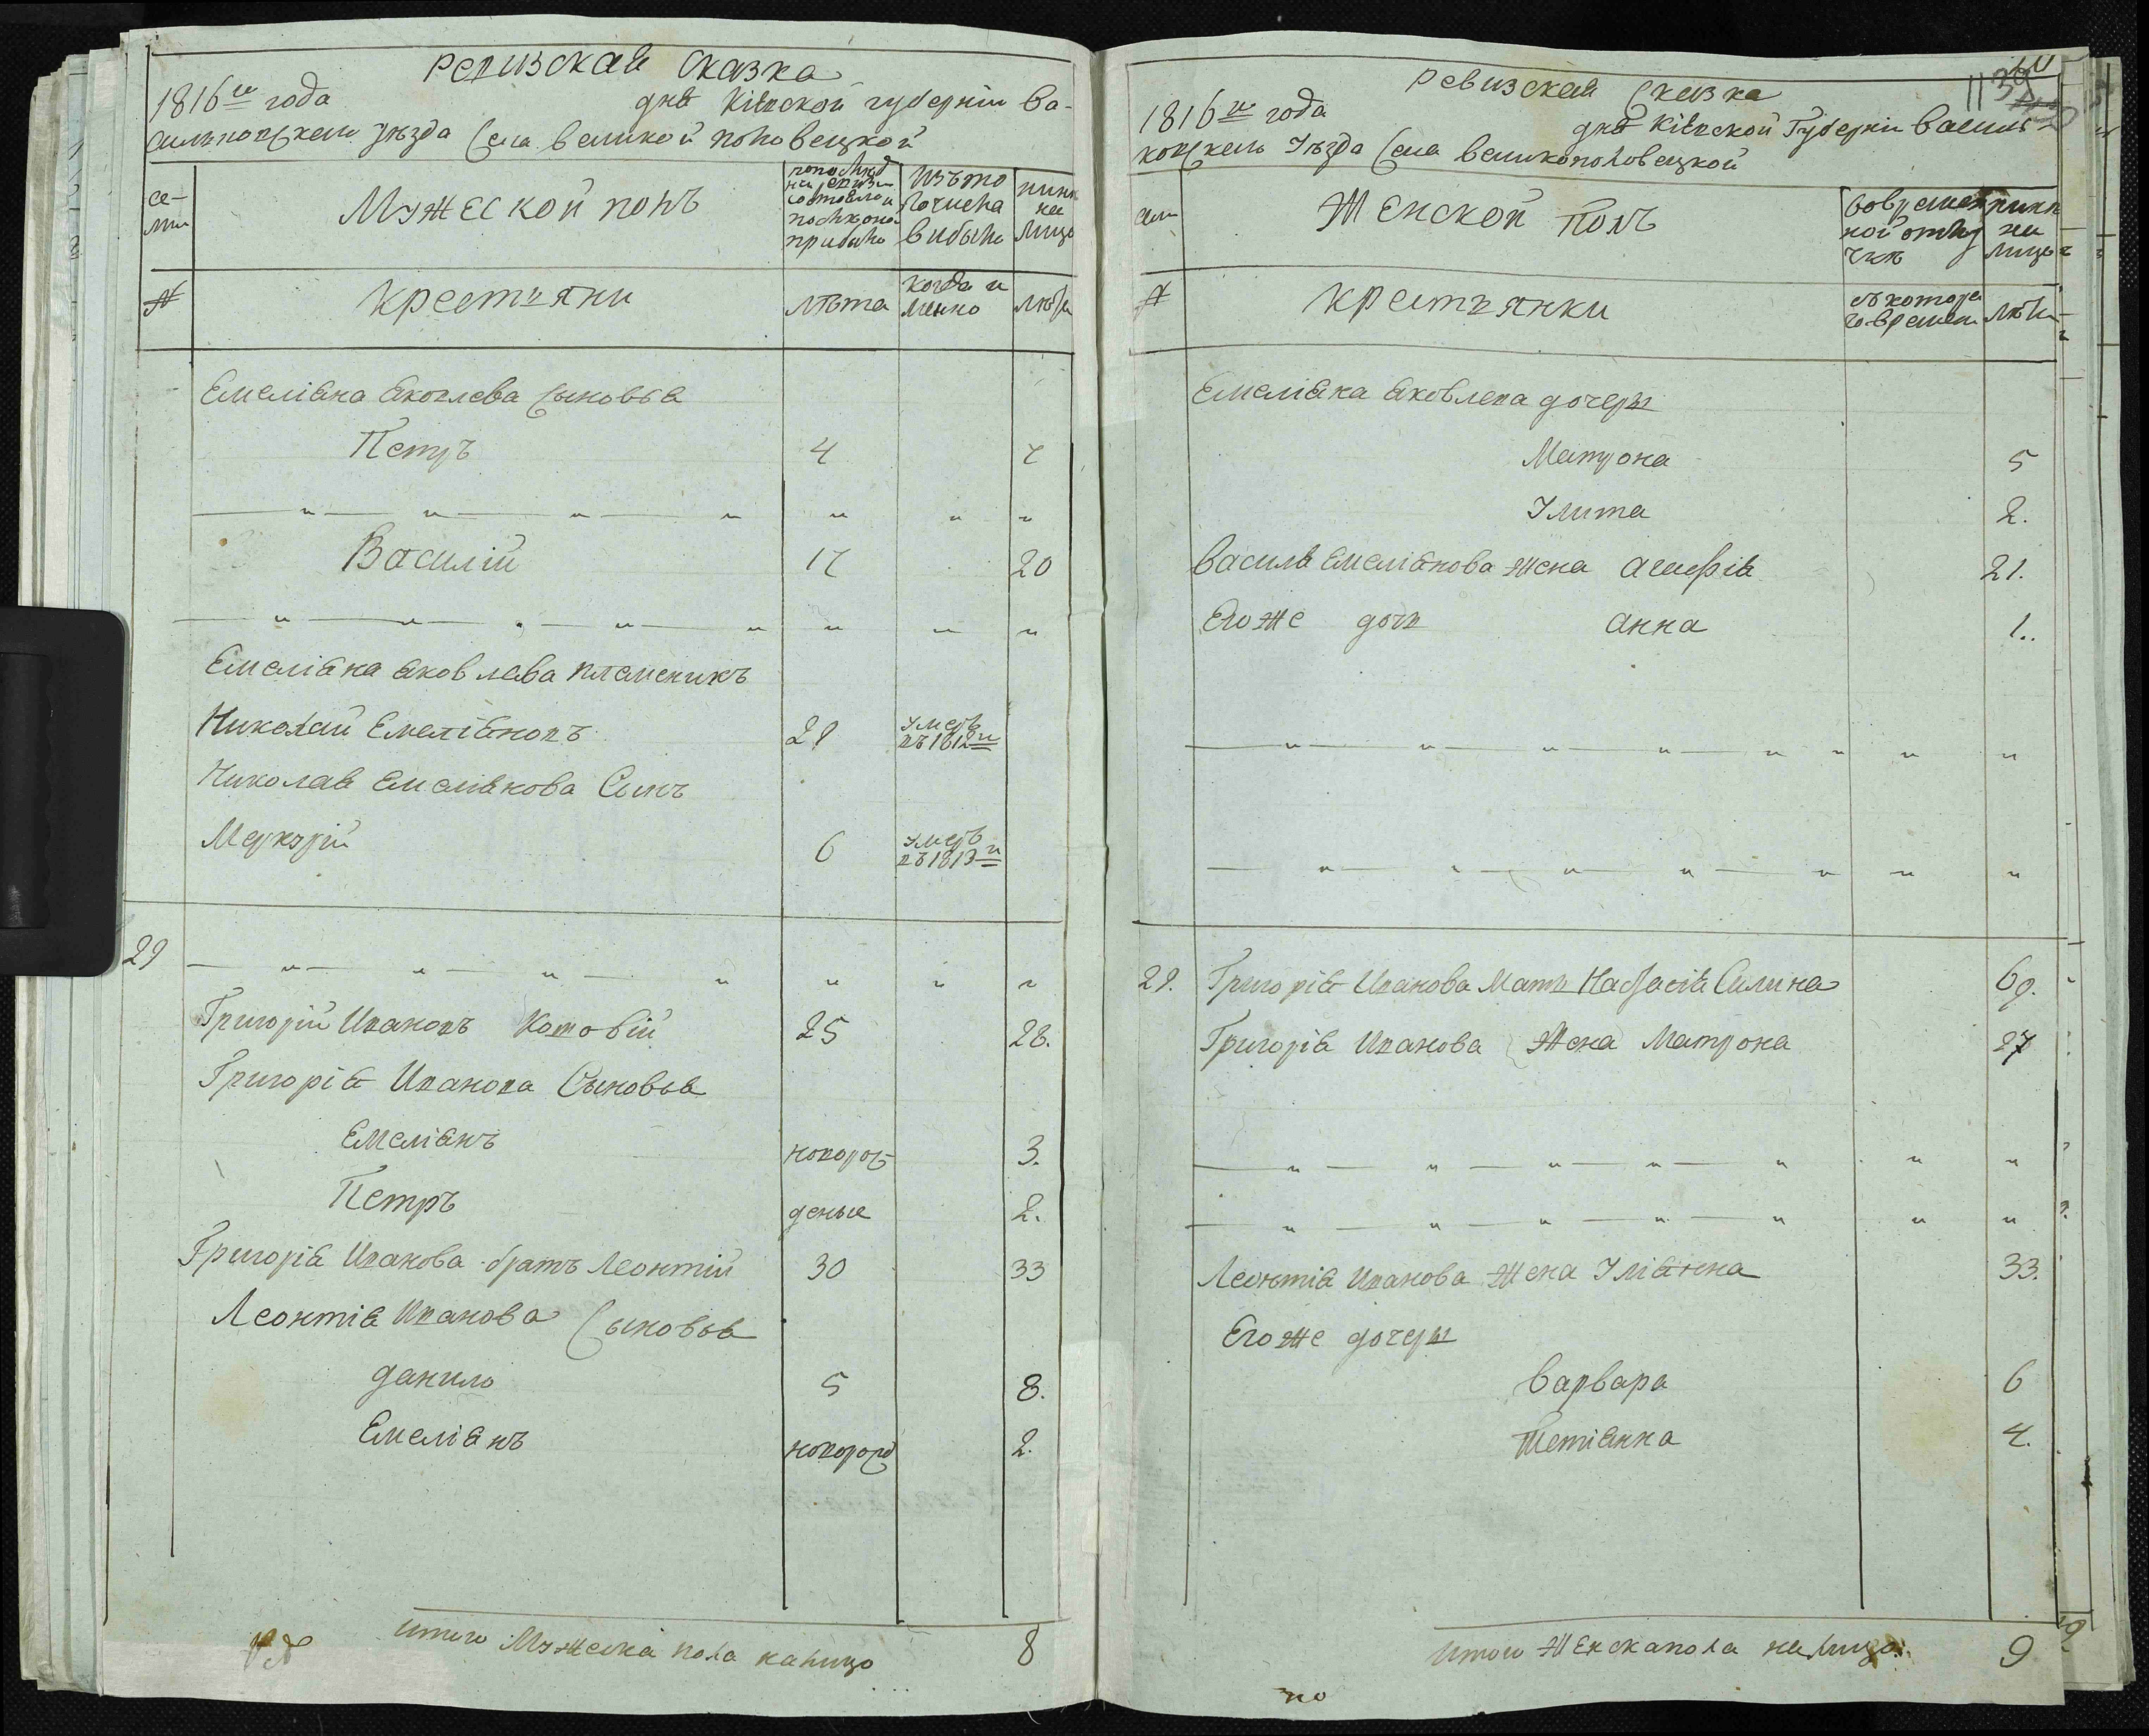 Ревизская Сказка
1816го года дня Кіевской губерніи Ва-
сильковскаго уезда Села великой половецкой
се-
мьи
Мужеской полъ
попослед
ней ревизи
состояло и
после оной
прибыло
Изъ то
го числа
выбыло
ныне
на
лицо
№
крестьяни
лета
когда и
менно
лета
Емеліана Яковлева Сыновья
Петръ 4 7
Василій 17 20
Емеліана Яковлева племеникъ
Николай Емеліановъ 29 умеръ
въ 1812м
Николая Емеліанова Сынъ
Меркурій 6 умеръ
въ 1813м
29
Григорій Ивановъ Котовій 25 28.
Григорія Иванова Сыновья
Емеліанъ новорож 3.
Петръ деные 2.
Григорія Иванова братъ Леонтій 30 33
Леонтія Иванова Сыновья
данило 5 8.
Емеліанъ новорожд 2.
итого Мужеска пола налицо 8
Ревизская Сказка
1816го года дня Кіевской Губерніи Василь-
ковскаго уезда Села великополовецкой
семи
Женской полъ
вовремен
ной отлу
чке
ныне
на
лицо
№
крестьянки
съ которо
го времени
лета
Емеліана Яковлева дочеры
Матрона 5
Улита 2.
Василя Емеліанова жена Агафія 21.
Егоже дочь Анна 1.
29. Григорія Иванова Мать Настасія Силина 69.
Григорія Иванова Жена Матрона 27
Леонтія Иванова жена Уліянна 33.
Егоже дочеры
Варвара 6
Тетіянна 4.
итого женска пола налицо 9
по